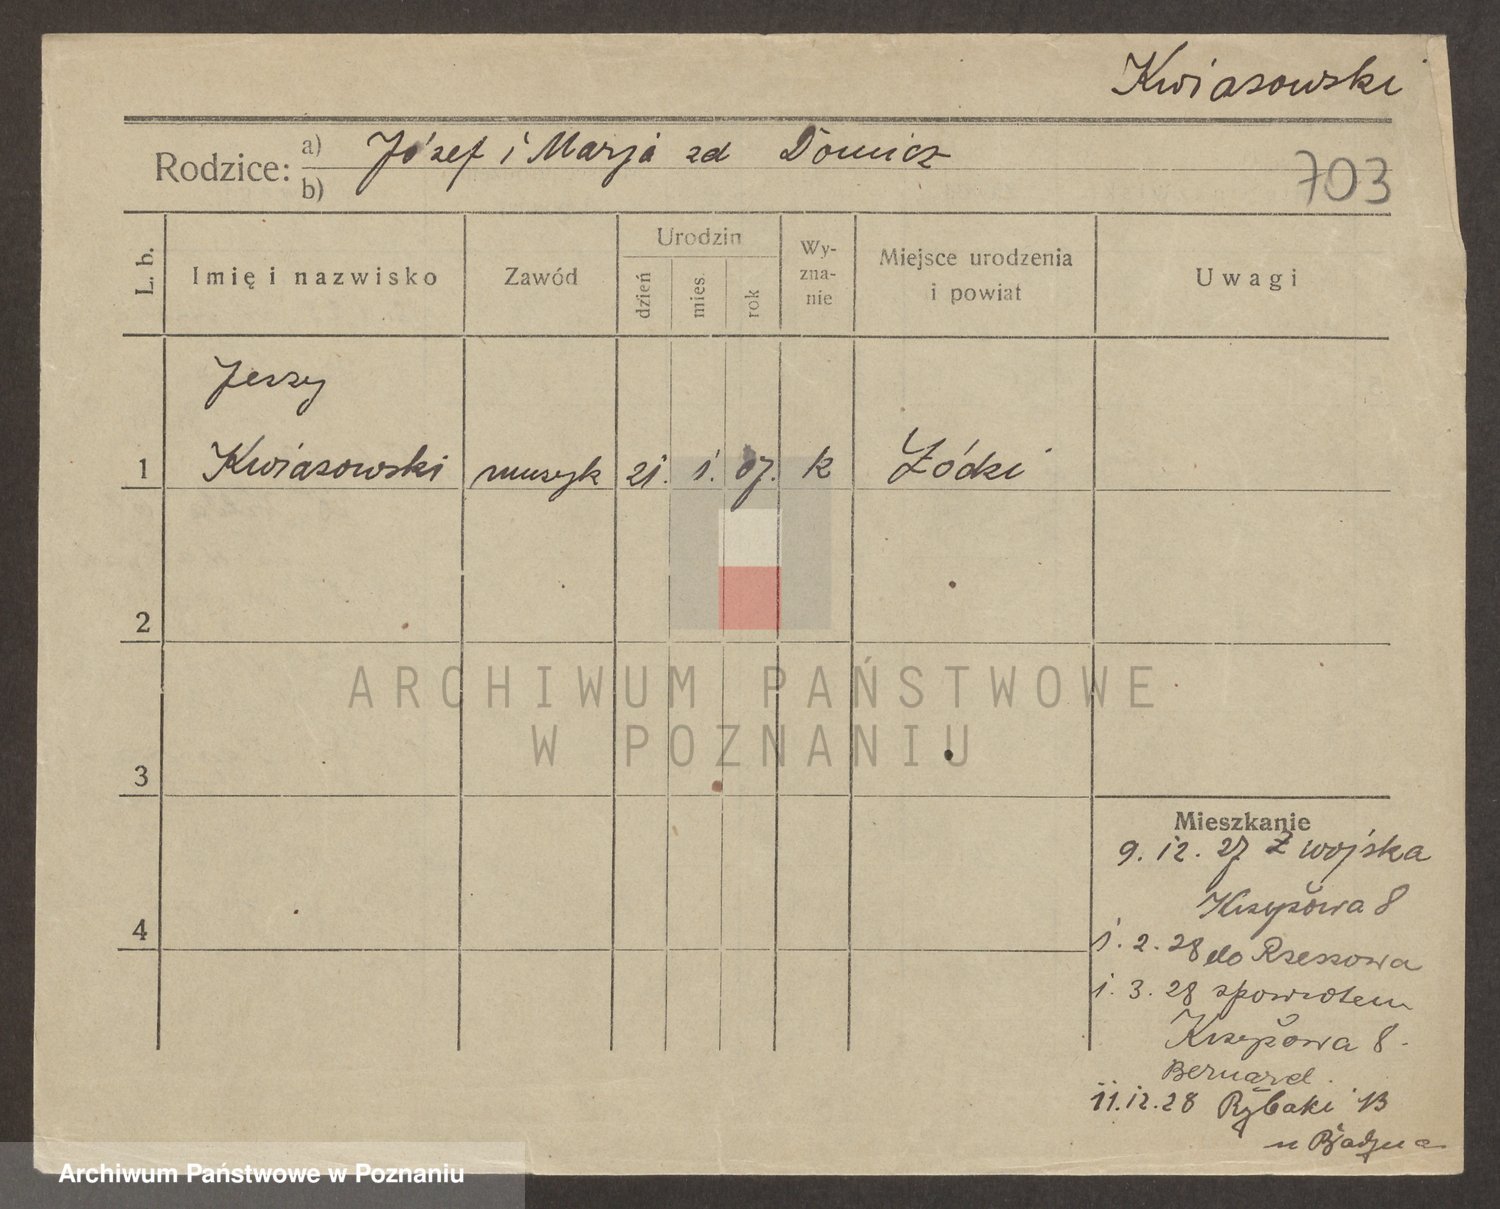 Kwiasowski
Rodzice: a) Józef i Marja zd Domicz
b)
703
L. b.
Imię i nazwisko
Zawód
Urodzin
dzień
mies.
rok
Wy-
zna-
nie
Miejsce urodzenia
i powiat
Uwagi
Jerzy
1 Kwiasowski muzyk 21. 1. 07. k Łódki
2
3
4
ARCHIWUM PAŃSTWOWE
W POZNANIU
Mieszkanie
9. 12. 27 Z wojska
Krzyżowa 8
1. 2. 28 do Rzeszowa
1. 3. 28 spowrotem
Krzyżowa 8.
Bernard.
11.12.28 Rybaki 13
u
Archiwum Państwowe w Poznaniu